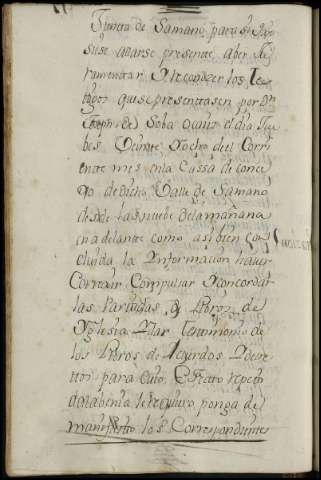 Junta de Samano para si qui
siese allarse presente, a ber Ju
ramentar Y Reconocer los Te
stigos que se presentasen por Dn
Joseph de Soba
bes Veinte Yocho del Corri
ente mes en la Cassa de conce
jo de Dicho Valle de Samano
desde las nuebe de la mañana
en adelante como asi bien con
cluida la Ynformacion hacer
Correxir Compulsar Y Concordar
las Partidas de Libros de
Yglesia Y dar testimonio de
los Libros de Acuerdos Y decre
tos para Cuio Efecto respecto
de manifiesto los Correspondientes